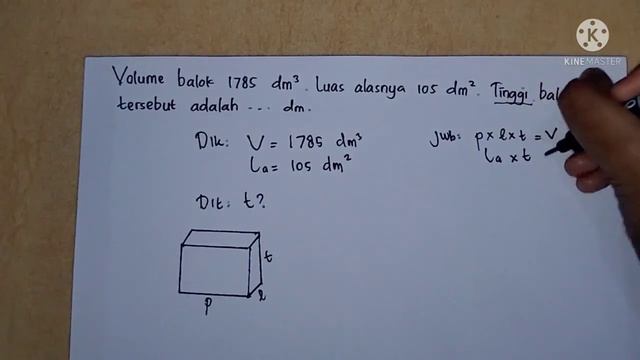 KINEMASTER
Volume balok 1785 dm³. Luas alasnya 105 dm². Tinggi
tersebut adalah ... dm.
Dik: V = 1785 dm³
La = 105 dm²
Dit: t?
Jwb: p x l x t = V
La x t
t
l
p